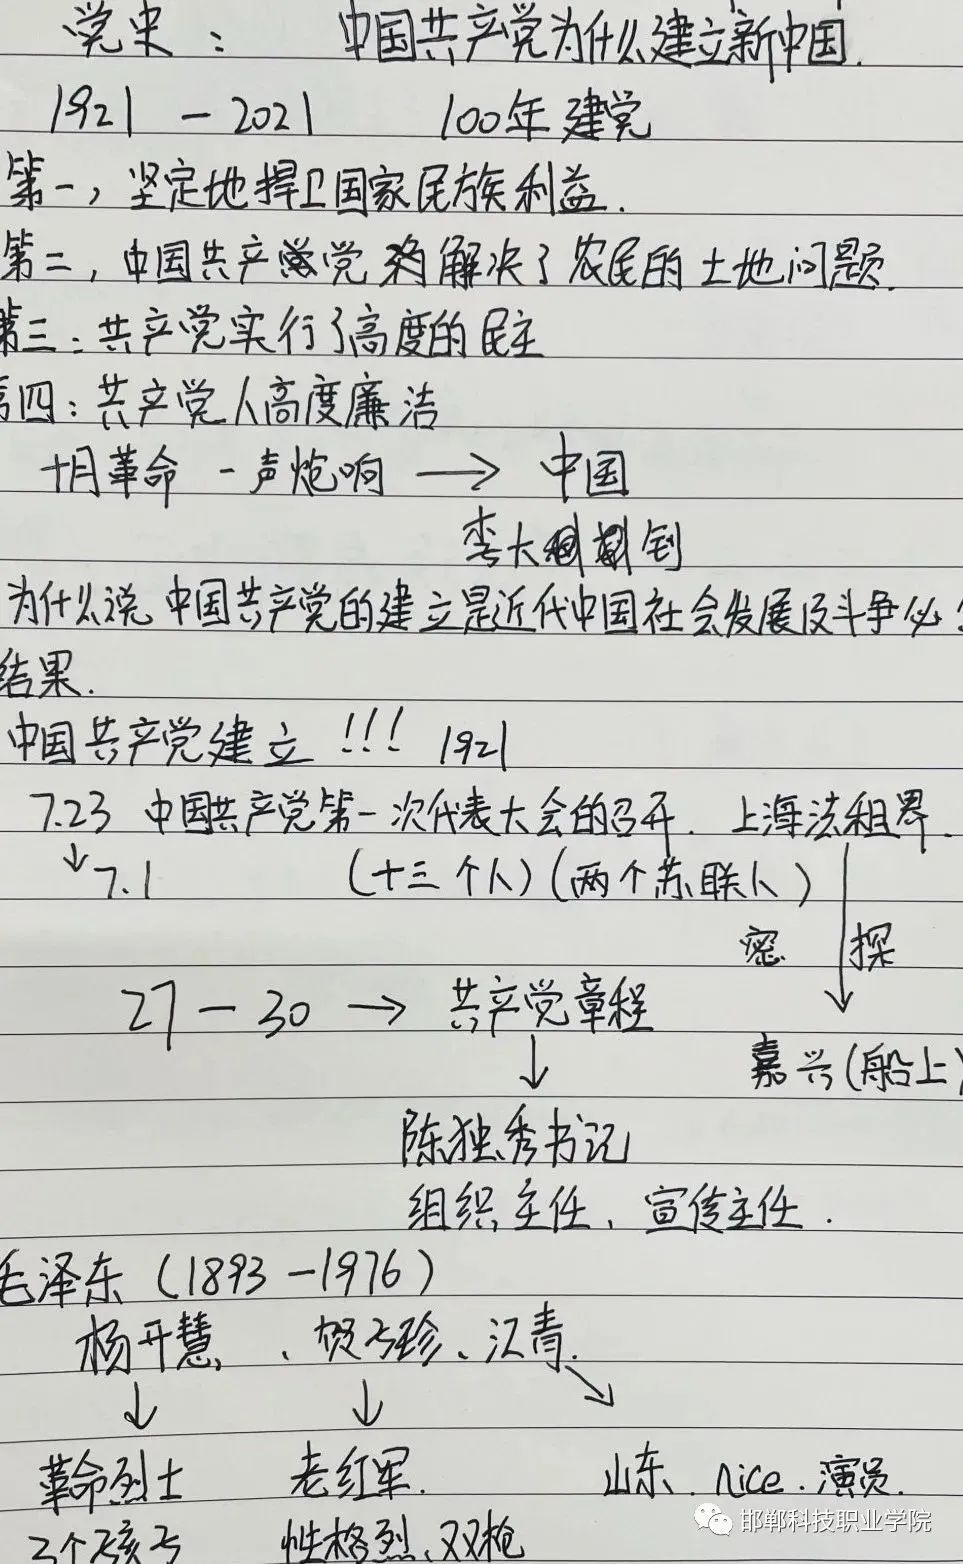 党史： 中国共产党为什么建立新中国.
1921 — 2021 100年建党
第一，坚定地捍卫国家民族利益.
第二，中国共产党 解决了农民的土地问题.
第三：共产党实行了高度的民主
第四：共产党人高度廉洁
十月革命 一声炮响 → 中国
李大钊
为什么说 中国共产党的建立是近代中国社会发展及斗争必
结果.
中国共产党建立 !!! 1921
7.23 中国共产党第一次代表大会的召开. 上海法租界.
↓7.1 (十三个人)(两个苏联人)
密 探
27 — 30 → 共产党章程
↓
嘉兴(船上)
陈独秀书记
组织主任、宣传主任.
毛泽东 (1893 — 1976)
杨开慧、贺子珍、江青.
↓ ↓ ↘
革命烈士 老红军. 山东. nice. 演员.
3个孩子 性格烈、双枪
邯郸科技职业学院